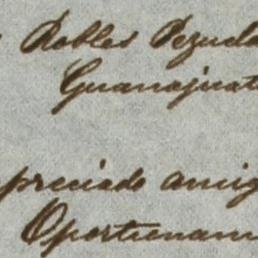 Robles Pezuela
Guanajuato
preciado amig
Oportunam